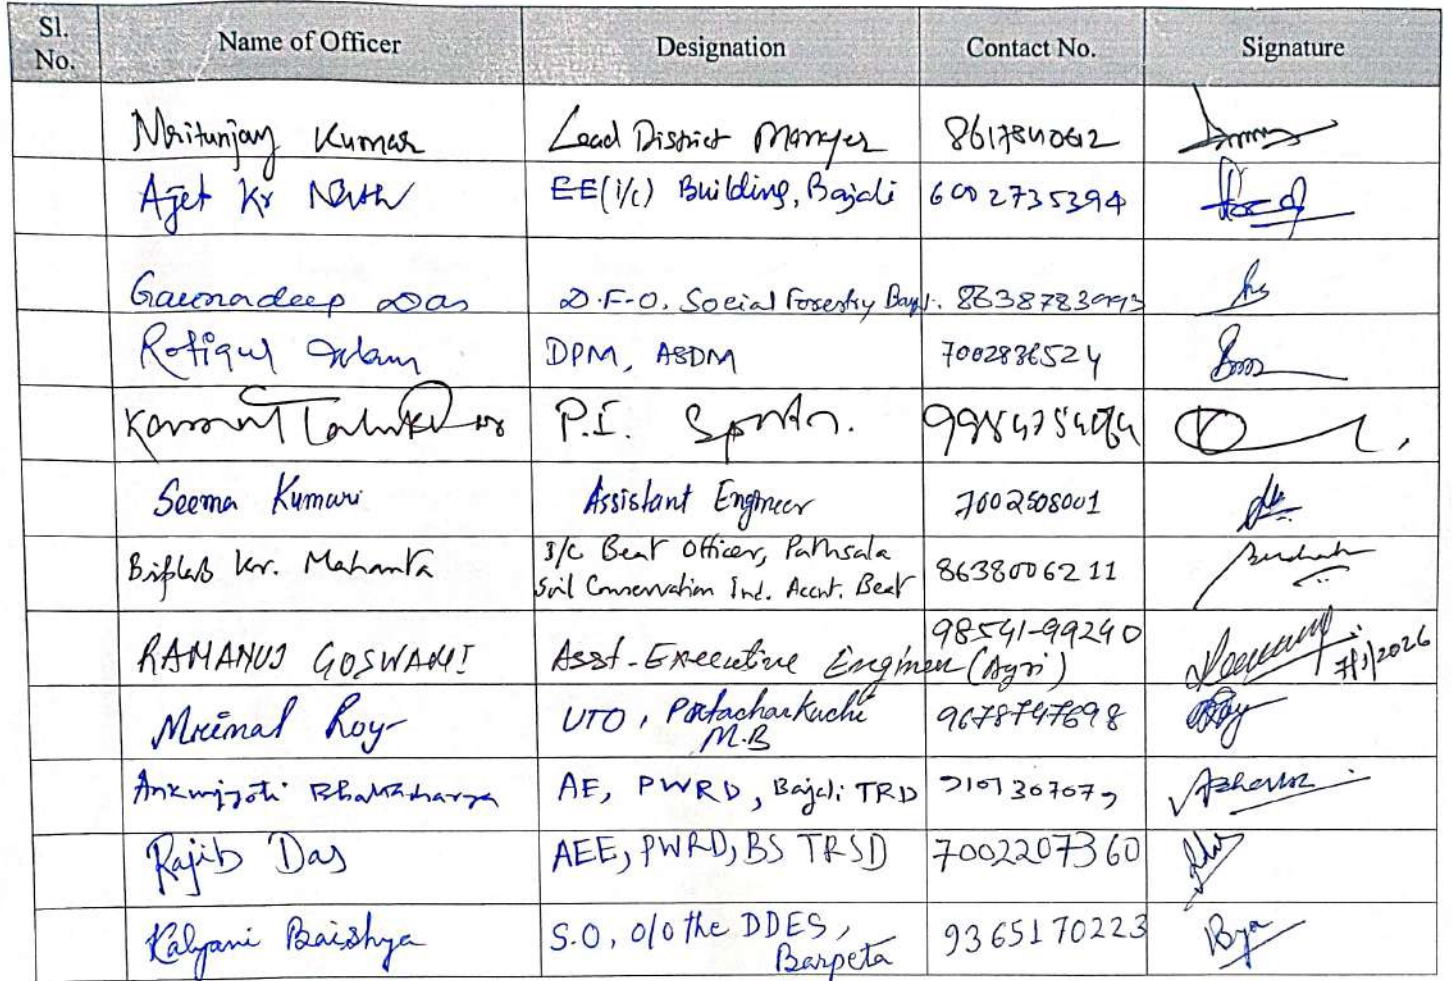 Sl. No. Name of Officer Designation Contact No. Signature
Mritunjay Kumar Lead District Manager 8617841062
Ajet Kr Nath EE(i/c) Building, Bajali 6002735394
Gaurnadeep Das D.F.O. Social Forestry
Rofiqul Islam DPM, ASDM 7002836524
Talukdar P.I. Sports.
Seema Kumari Assistant Engineer 7002508001
Biplab Kr. Mahanta I/C Beat Officer, Pathsala
Soil Conservation Ind. Accnt. Beat 8638006211
98541-99240
RAMANUJ GOSWAMI Asst-Executive Engineer (Agri) 7/1/2026
Mrinal Roy UTO, Patacharkuchi 9678747698
M.B
Ankurjyoti Bhattacharya AE, PWRD, Bajali TRD
Rajib Das AEE, PWRD, BS TRSD 7002207360
Kalyani Baishya S.O, o/o the DDES, 9365170223
Barpeta